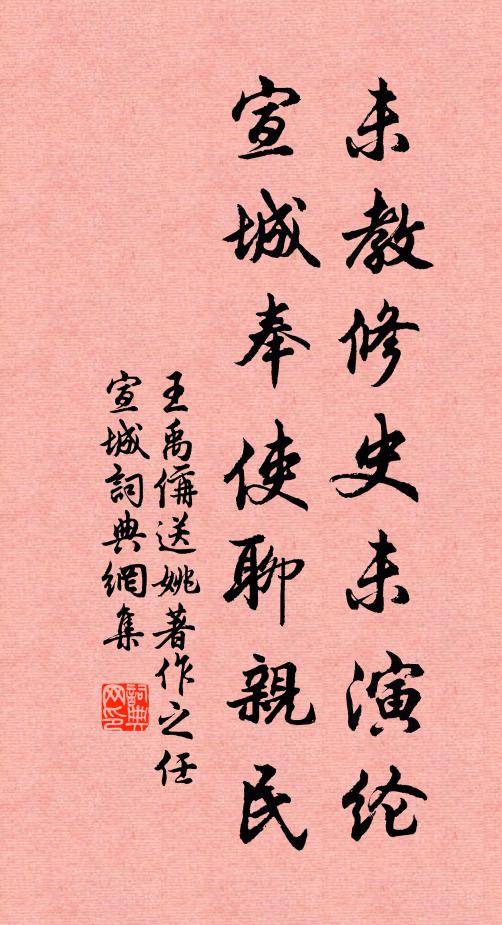 未教修史未演纶
宣城奉使聊親民
王禹偁送姚著作之任
宣城詞典網集
詞典网印